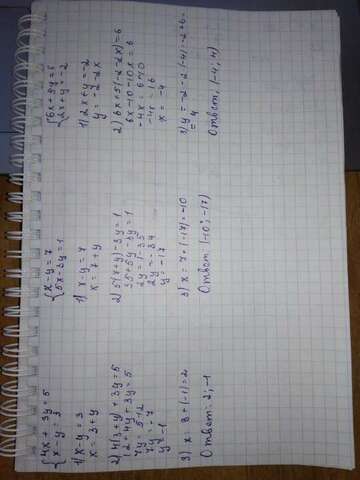 { 4x + 3y = 5
x - y = 3
1) x - y = 3
x = 3 + y
2) 4(3+y) + 3y = 5
12 + 4y + 3y = 5
7y = 5 - 12
7y = -7
y = -1
3) x = 3 + (-1) = 2
Ответ: 2; -1
{ x - y = 7
5x - 3y = 1
1) x - y = 7
x = 7 + y
2) 5(7+y) - 3y = 1
35 + 5y - 3y = 1
2y = 1 - 35
2y = -34
y = -17
3) x = 7 + (-17) = -10
Ответ: (-10; -17)
2x + y = -2
1) 2x + y = -2
y = -2 - 2x
2) 6x + 5(-2-2x) = 6
6x - 10 - 10x = 6
-4x = 16
x = -4
= 4
Ответ: (-4; 4)